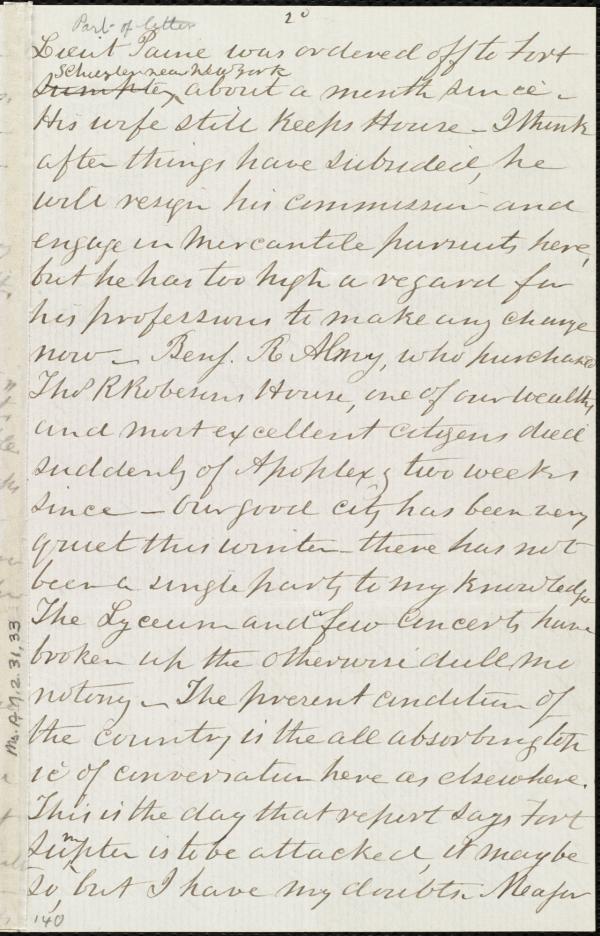 Part of letter
2d
Lieut Paine was ordered off to Fort
Schuyler near New York
Sumpter about a month since -
His wife still keeps House - I think
after things have subsided, he
will resign his commission and
engage in mercantile pursuits here,
but he has too high a regard for
his professions to make any change
now - Benj. R Almy, who purchased
Thos R Robesons House, one of our wealthy
and most excellent citizens died
suddenly of Apoplexy two weeks
since - Our good city has been very
quiet this winter - there has not
been a single party to my knowledge
The Lyceum and a few Concerts have
broken up the otherwise dull mo
notony - The present condition of
the country is the all absorbing top
ic of conversation here as elsewhere.
This is the day that report says Fort
Sumpter is to be attacked, it may be
so, but I have my doubts. Major
140
Ms. A.9.2.31,33